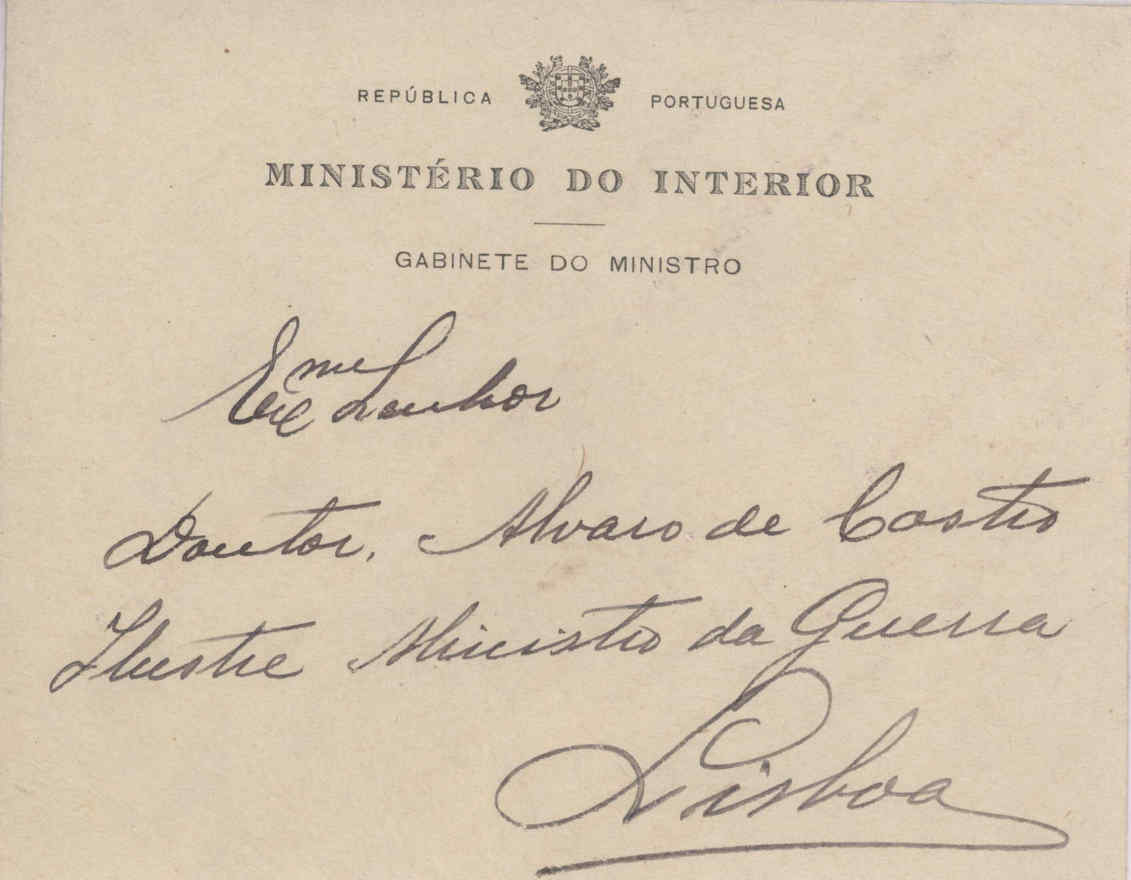 REPÚBLICA PORTUGUESA
MINISTÉRIO DO INTERIOR
GABINETE DO MINISTRO
Exme Senhor
Doutor, Alvaro de Castro
Ilustre Ministro da Guerra
Lisboa